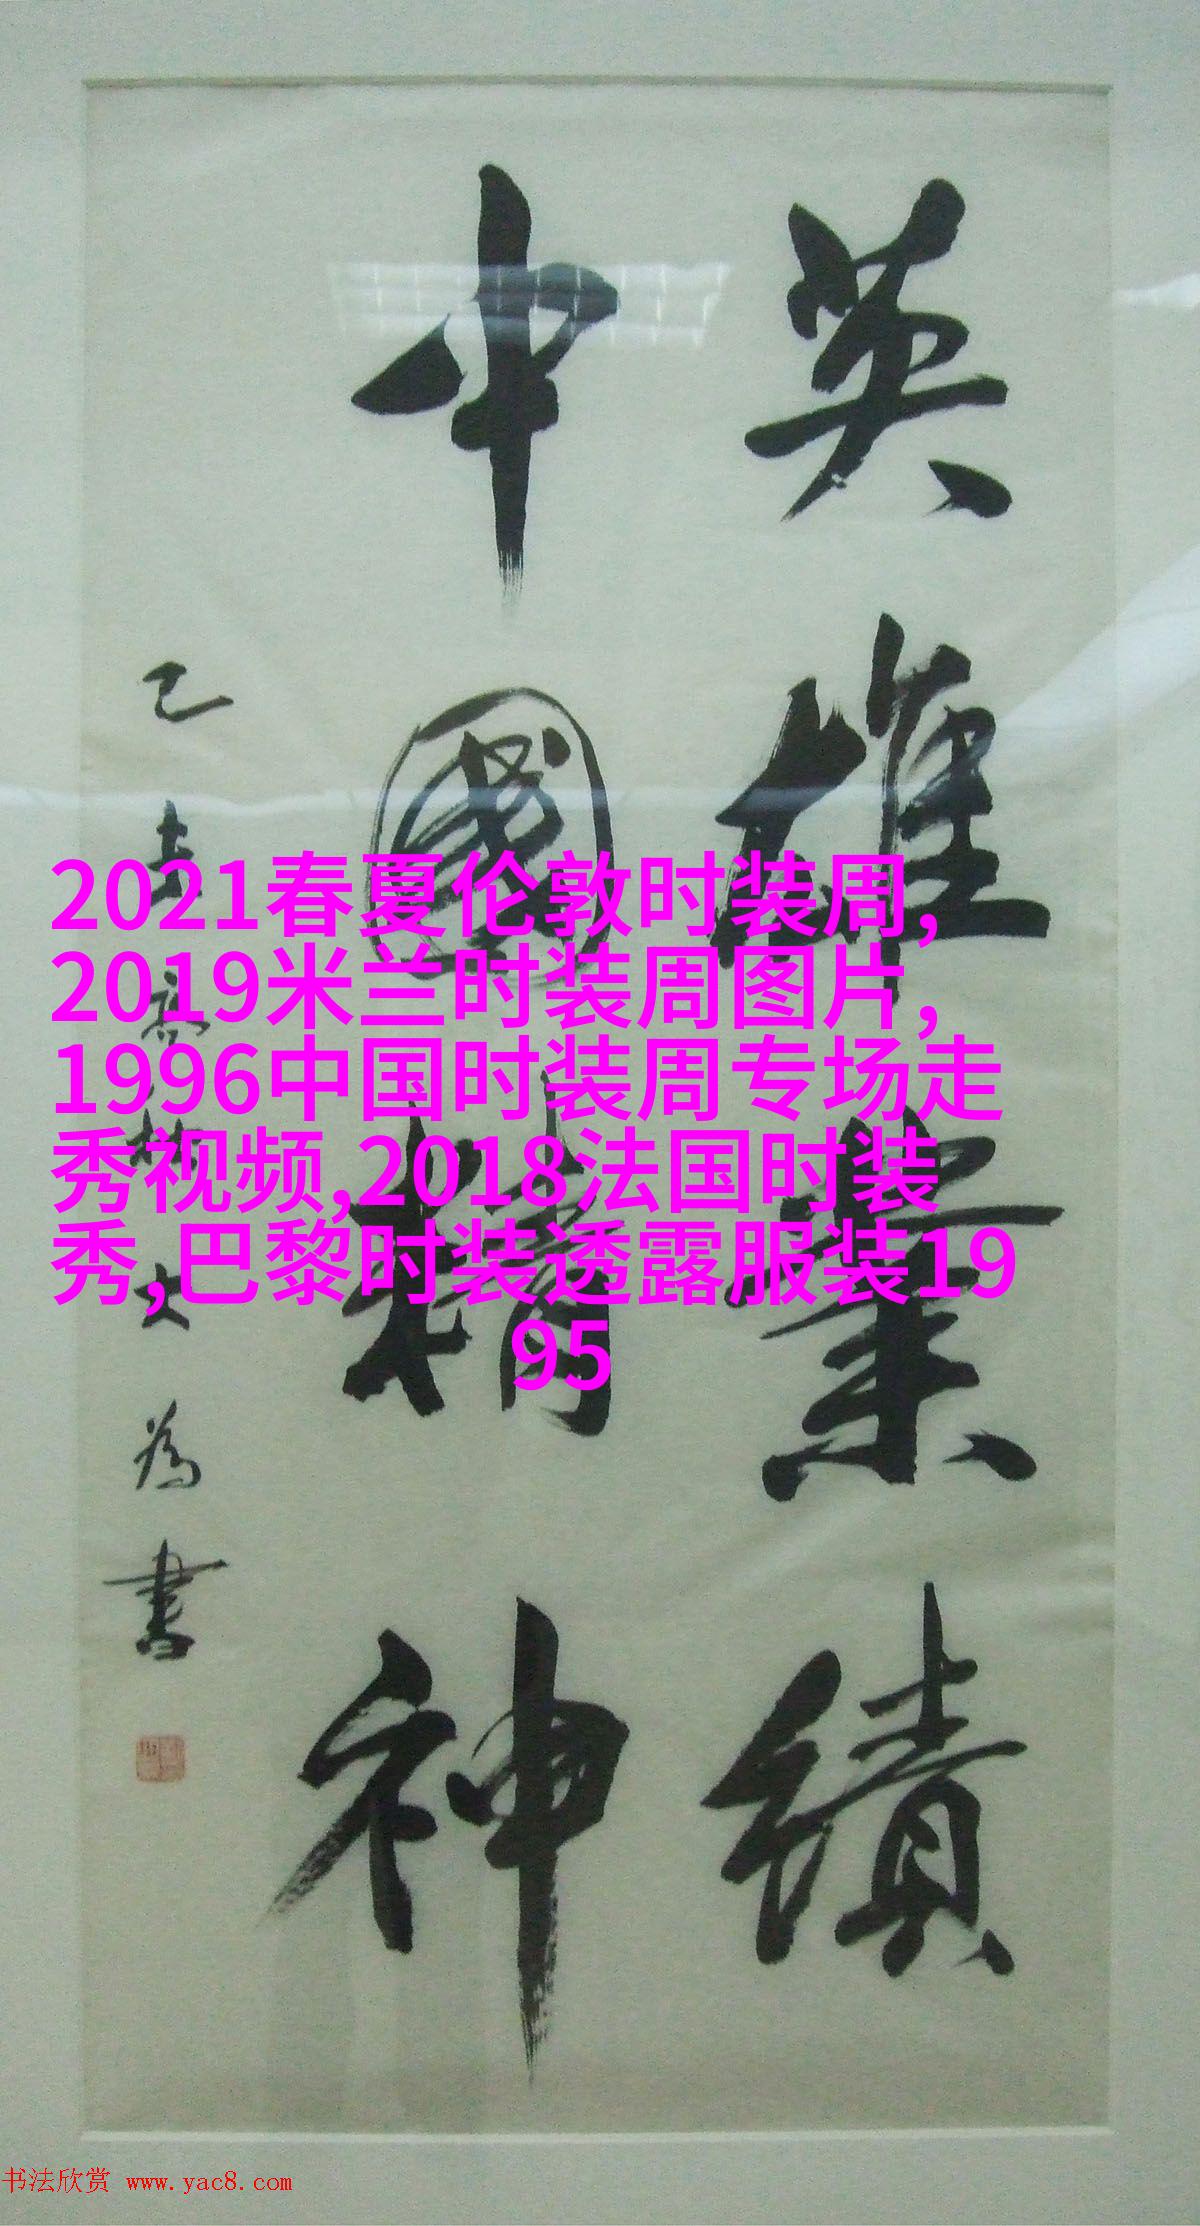 英雄業績
中國精神
己丑高秋大為書
2021春夏伦敦时装周,
2019米兰时装周图片,
1996中国时装周专场走
秀视频,2018法国时装
秀,巴黎时装透露服装19
95
书法欣赏 www.yac8.com